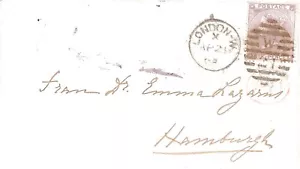 LONDON-W
X
AP 21
W
Frau Dr. Emma Lazarus
Hamburgh